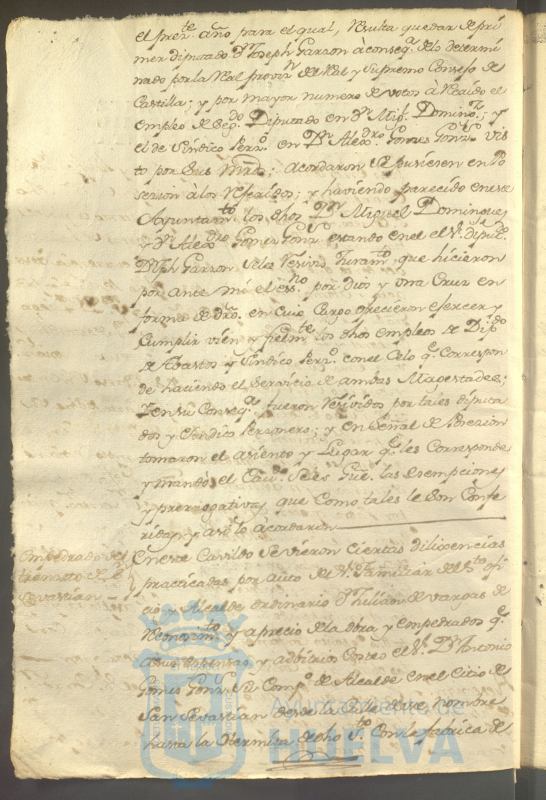 el prste. año para el qual, Resulta quedar de pri
mer diputado Dn. Joseph Garzon a conseqa. de lo determi
nado por la Real provisn. del Rl. y Supremo Consejo de
Castilla; y por mayor numero de votos à Recaido el
empleo de Segdo. Diputado en Dn. Migl. Domingz.; y
el de Sindico Perzo. en Dn. Alexdro. Gomez Gonzs. vis
to por Sus Mrds.; acordaron Se pusiesen en Po
sesion à los Referidos; y haviendo parecido en este
Ayuntamto. los dhos Dn. Miguel Domingues
y Dn. Alexdro. Gomez Gonzs. estando en el el Sr. diput.
Dn. Jph Garzon Se les Resivió Juramto. que hicieron
por ante mi el essno. por Dios y una Cruz en
forma de dro. en Cuio Cargo ofrecieron esercer y
Cumplir vien y fielmte. los dhos empleos de Dipdo.
de Abastos y Sindico Perzo. con el Celo qe. Correspon
de haciendo el Servicio de ambas Magestades;
y en su Conseqa. fueron Resividos por tales diputa
dos y Sindico Personero; y en Señal de Posesion
tomaron el asiento y Lugar qe. les Corresponde
y mandó el Cavdo. Se les Gue. las esempciones
y prerrogativas que Como tales le Son Confe
ridas, y asi lo acordaron
Empedrado del
transito de Sn.
Sevastian
En este Cavildo Se vieron Ciertas diligencias
practicadas por auto del Sr. Familiar del Sto. ofi
cio y Alcalde ordinario Dn. Julian de Vargas de
Reconocimto. y aprecio de la obra y empedrados qe.
a sus espensas y adbitrios Costeo el Sr. Dn. Antonio
Gomez Gonzs. Su Compo. de Alcalde en el Citio de
San Sevastian desde la Calle de este nombre
hasta la Hermita de dho Sto. Con la fabrica de
Ayuntamiento de
HUELVA